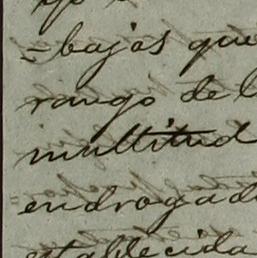 -bajos que
rango del
multitud
endrogad
establecida